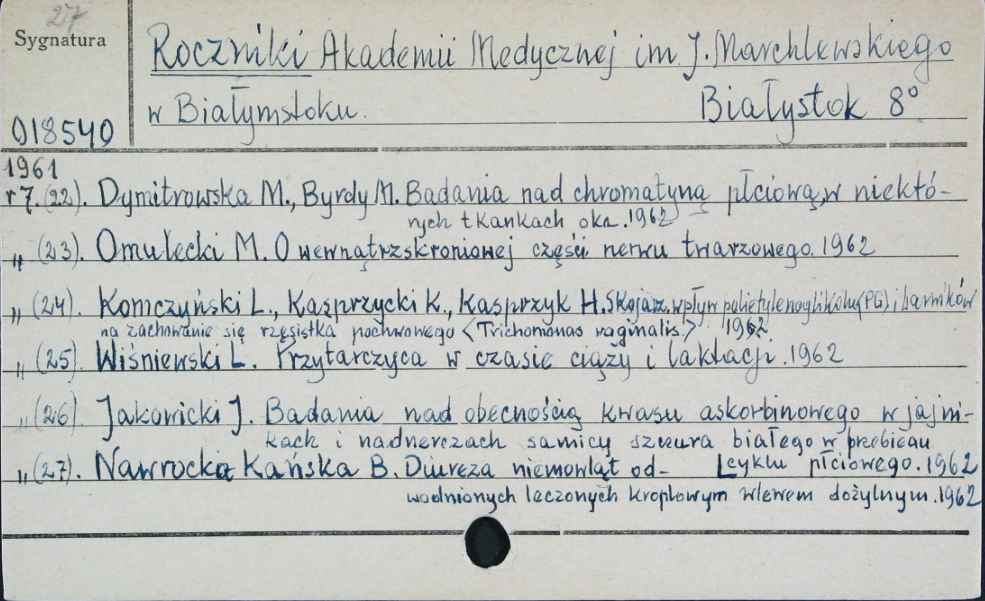 27
Sygnatura
Roczniki Akademii Medycznej im J. Marchlewskiego
w Białymstoku. Białystok 8°
018540
1961
r 7. (22). Dymitrowska M., Byrdy M. Badania nad chromatyną płciową, w niektó-
rych tkankach okr. 1962
„ (23). Omulecki M. O wewnątrzskroniowej części nerwu twarzowego. 1962
„ (24). Komczyński L., Kasprzycki K., Kasprzyk H. Skojarz. wpływ polietylenoglikolu (PG) i barwników
na zachowanie się rzęsistka pochwowego (Trichomonas vaginalis.) 1962.
„ (25). Wiśniewski L. Przytarczyca w czasie ciąży i laktacji. 1962
„ (26). Jakowicki J. Badania nad obecnością kwasu askorbinowego w jajni-
kach i nadnerczach samicy szczura białego w przebiegu
cyklu płciowego. 1962
„ (27). Nawrocka Kańska B. Diureza niemowląt od-
wodnionych leczonych kroplowym wlewem dożylnym. 1962